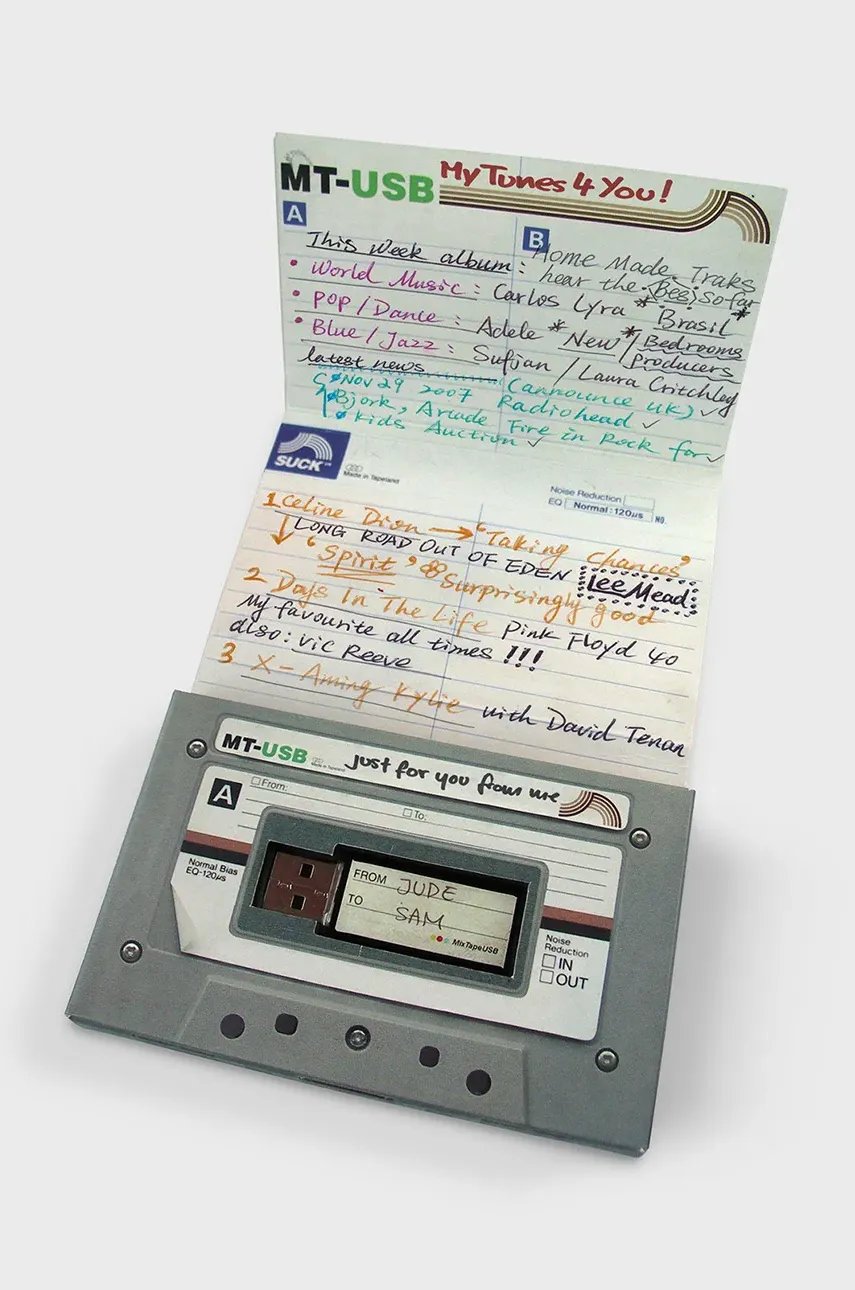 MT-USB My Tunes 4 You!
A B
This Week album : Home Made Traks
hear the Best so far
• World Music : Carlos Lyra * Brasil *
• POP / Dance : Adele * New * / Bedrooms
Producers
• Blue / Jazz : Sufjan / Laura Critchley
latest news
Nov 29 2007 Radiohead (announce UK) ✓
Bjork, Arcade Fire in Rock for ✓
Kids Auction ✓
SUCK
Made in Tapeland
Noise Reduction
EQ Normal:120µs NO.
1 Celine Dion → 'Taking Chances'
LONG ROAD OUT OF EDEN Lee Mead
'Spirit' Surprisingly good
2 Days In The Life Pink Floyd 40
My favourite all times !!!
also : Vic Reeve
3 X - Aming Kylie with David Tenan
MT-USB Made in Tapeland just for you from me
A From: To:
Normal Bias
EQ-120µs
FROM JUDE
TO SAM
MixTapeUSB
Noise
Reduction
IN
OUT